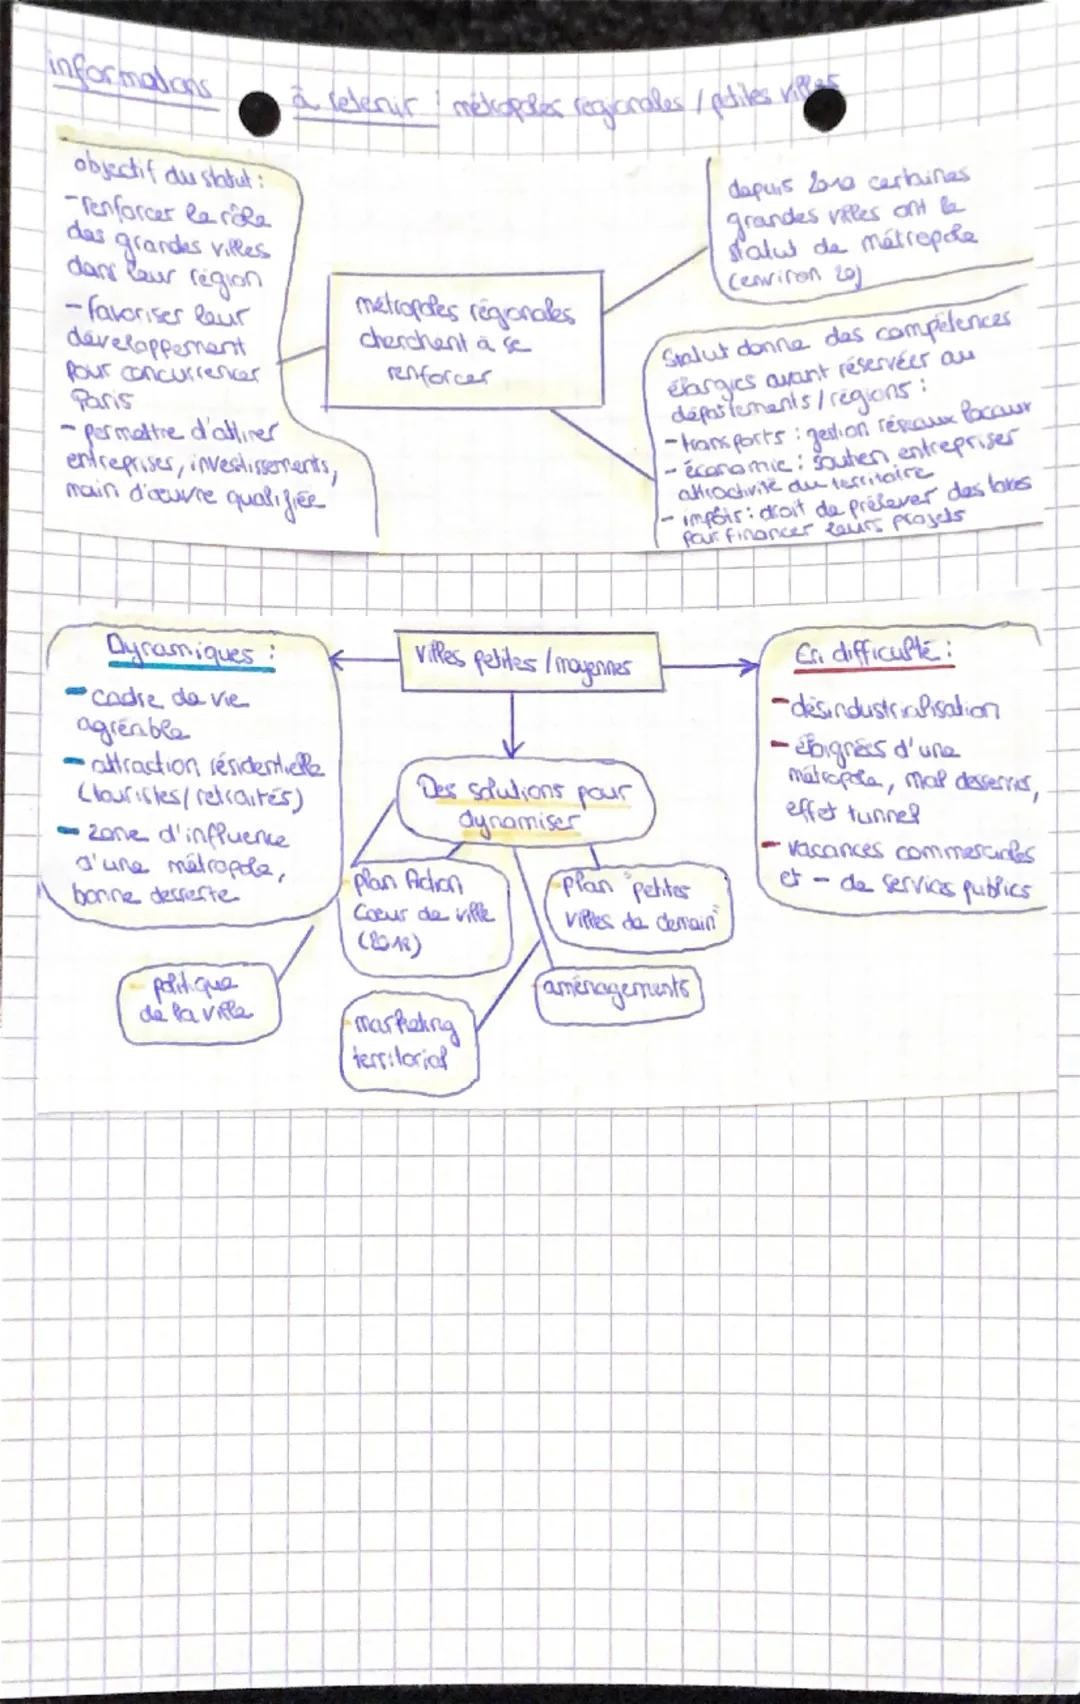 informations à retenir : métropoles régionales / petites villes
objectif du statut :
- renforcer le rôle
des grandes villes
dans leur région
- favoriser leur
développement
pour concurrencer
Paris
- permettre d'attirer
entreprises, investissements,
main d'œuvre qualifiée
métropoles régionales
cherchent à se
renforcer
depuis 2010 certaines
grandes villes ont le
statut de métropole
(environ 20)
Statut donne des compétences
élargies avant réservées au
départements / régions :
- transports : gestion réseaux locaux
- économie : soutien entreprises
attractivité du territoire
- impôts : droit de prélever des taxes
pour financer leurs projets
Dynamiques :
- cadre de vie
agréable
- attraction résidentielle
(touristes / retraités)
- zone d'influence
d'une métropole,
bonne desserte
villes petites / moyennes
En difficulté :
- désindustrialisation
- éloignées d'une
métropole, mal desservies,
effet tunnel
- vacances commerciales
et - de services publics
Des solutions pour
dynamiser
plan Action
Coeur de ville
(2018)
plan "petites
villes de demain"
politique
de la ville
marketing
territorial
aménagements